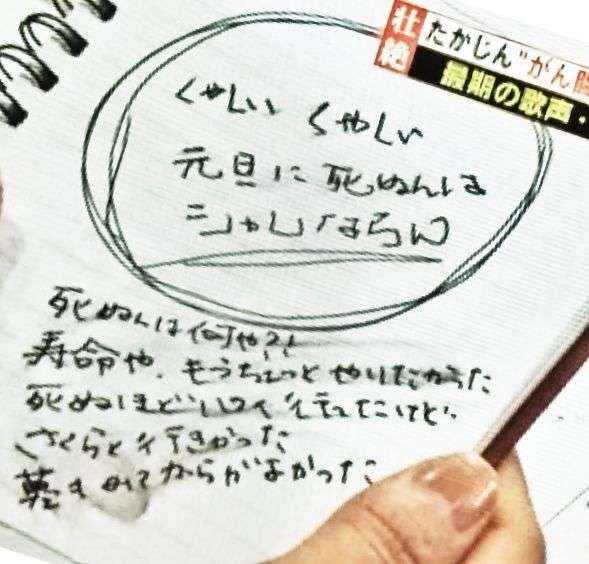 壮絶
たかじん"がん闘
最期の歌声・
くやしい くやしい
元旦に死ぬんは
シャレならん
死ぬんは何や?!
寿命や、もうちょっとやりたかった
死ぬほどハワイ行ってたけど、
さくらと行きかった
籍入れてからがよかった